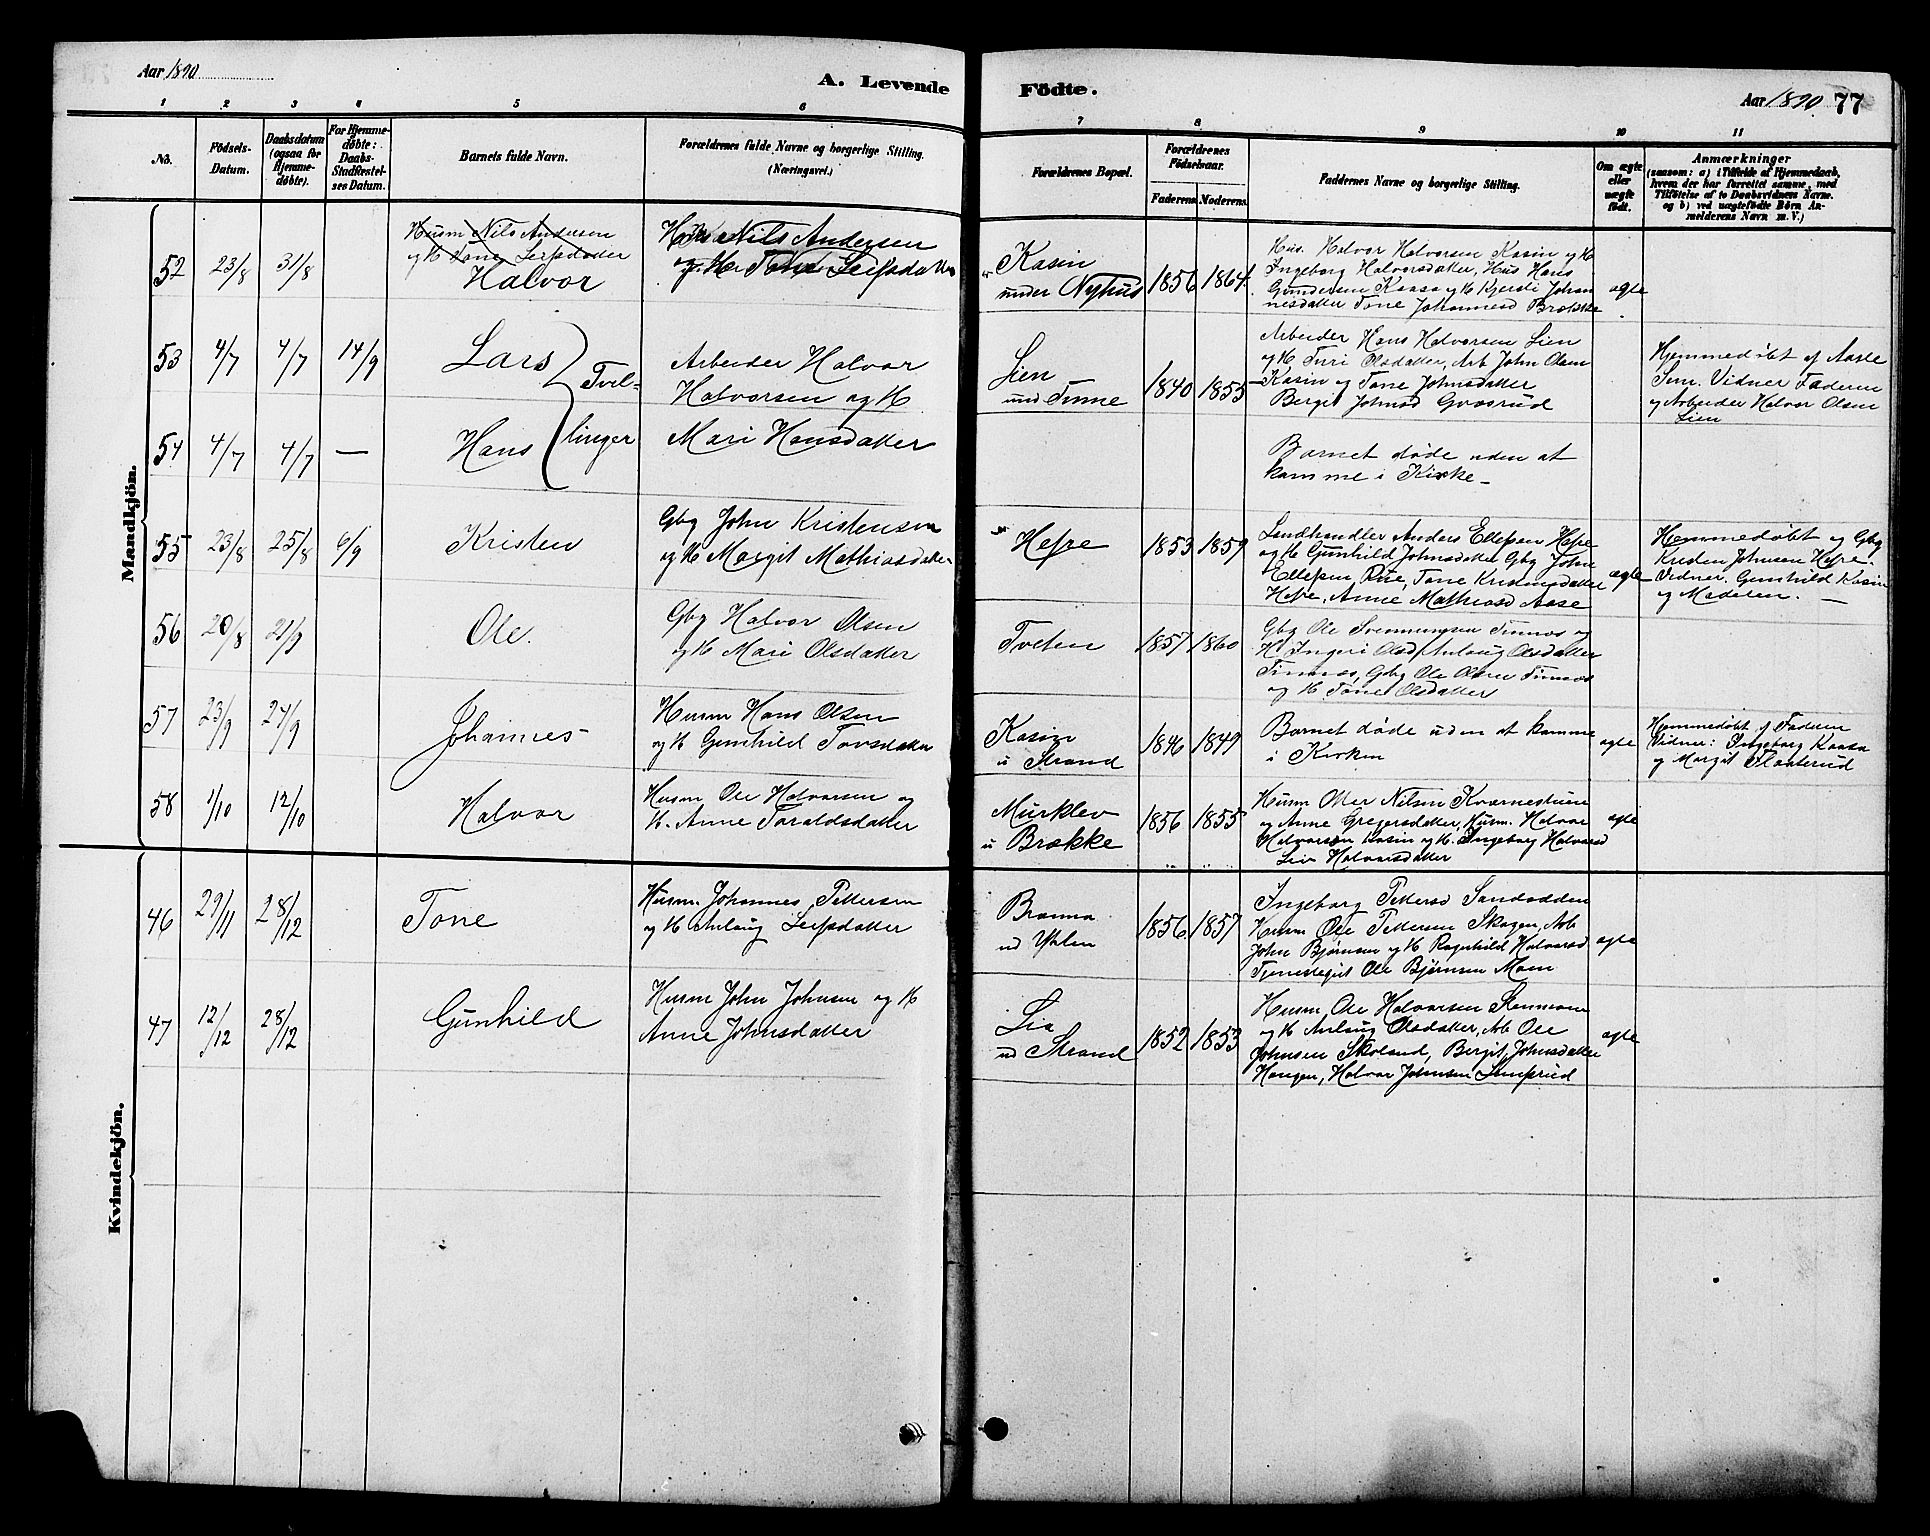 Aar 1890
A. Levende Födte.
Aar 1890. 77
1 2 3 4 5 6 7 8 9 10 11
No.
Födsels-Datum.
Daabsdatum (ogsaa for Hjemme-døbte).
For Hjemme-døbte: Daabs-Stadfæstel-ses Datum.
Barnets fulde Navn.
Forældrenes fulde Navne og borgerlige Stilling. (Næringsvei.)
Forældrenes Bopæl.
Forældrenes Födselsaar.
Faderens Moderens
Faddernes Navne og borgerlige Stilling.
Om ægte eller uægte født.
Anmærkninger
(saasom: a) i Tilfælde af Hjemmedaab,
hvem der har forrettet samme, med
Tilföielse af to Daabsvidners Navne.
og b) ved uægtefödte Börn An-
melderens Navn m. V.)
Mandkjön.
52 23/8 31/8
Husm Nils Andersen
og H Tone Leifsdatter
Halvor
Nils Andersen
og H Tone Leifsdatter
Kasin
under Nyhus
1856 1864
Hus. Halvor Halvorsen Kasin og H
Ingeborg Halvorsdatter, Hus Hans
Gundersen Kaasa og H Kjersti Johan
nesdatter Tone Johannesd Brække
ægte
53 4/7 4/7 14/9
Lars
Tvil-
Arbeider Halvor
Halvorsen og H
Lien
und Tinne
1840 1855
Arbeider Hans Halvorsen Lien
og H Turi Olsdatter, Arb John Olsen
Kasin og Tone Johnsdatter
Bergit Johnsd Gvæsrud
Hjemmedøbt af Aasle
Sem. Vidner Faderen
og Arbeider Halvor Olsen
Lien
54 4/7 4/7 —
Hans
linger
Mari Hansdatter
Barnet døde uden at
komme i Kirke —
55 23/8 25/8 6/9
Kristen
Gbg John Kristensen
og H Margit Mathiasdatter
Hefre
1853 1859
Landhandler Anders Ellefsen Hefre
og H Gunhild Johnsdatter Gbg John
Ellefsen Rue, Tone Kristensdatter
Hefre, Anne Mathiasd Aase
ægte
Hjemmedøbt og Gbg
Kristen Johnsen Hefre.
Vidner. Gunhild Kasin
og Moderen. —
56 20/8 21/9
Ole.
Gbg Halvor Olsen
og H Mari Olsdatter
Tveten
1857 1860
Gbg Ole Svenningsen Tinnæs og
H Ingeri Olsd, Anlaug Olsdatter
Tinnæs, Gbg Ole Olsen Tinnæs
og H Tone Olsdatter
57 23/9 24/9
Johannes
Husm Hans Olsen
og H Gunhild Tovsdatter
Kasin
u Strand
1846 1849
Barnet døde uden at komme
i Kirken
ægte
Hjemmedøbt af Faderen
Vidner: Ingeborg Kaasa
og Margit Flaaterud
58 1/10 12/10
Halvor
Husm Ole Halvorsen og
H. Anne Toraldsdatter
Murklev
u Brække
1856 1855
Husm Otter Nilsen Kvernestuen
og Anne Gregersdatter, Husm. Halvor
Halvorsen Kasin og H. Ingeborg Halvorsd
Liv Halvorsdatter
ægte
Kvindekjön.
46 29/11 28/12
Tone
Husm. Johannes Pettersen
og H Anlaug Leifsdatter
Bronna
ud
1856 1857
Ingeborg Pettersd Sandsodden
Husm Ole Pettersen Skogen, Arb
John Bjørnsen og H Ragnhild Halvorsd
Tjenestegut Ole Bjørnsen Moen
ægte
47 12/12 28/12
Gunhild
Husm John Johnsen og H
Anne Johnsdatter
Lia
ud Strand
1852 1853
Husm, Ole Halvorsen
og H Anlaug Olsdatter, Arb Ole
Johnsen Skoland, Bergit Johnsdatter
Haugen, Halvor Johnsen
ægte